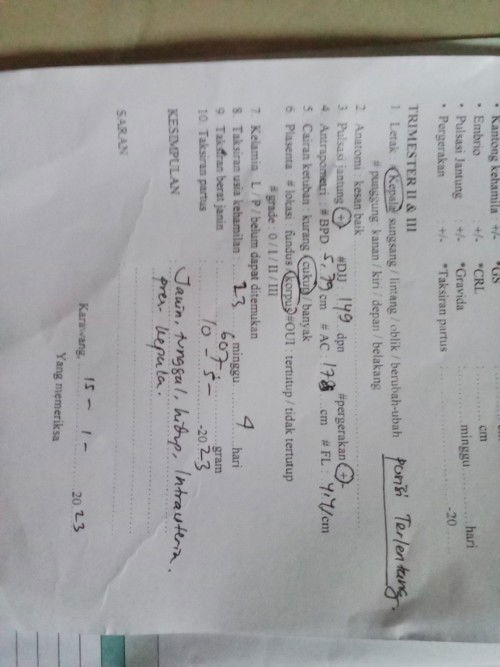 Kantong kehamilan +/- *GS cm
* Embrio : +/- *CRL cm
* Pulsasi Jantung : +/- *Gravida minggu hari
* Pergerakan : +/- *Taksiran partus -20
TRIMESTER II & III
1 Letak # Kepala / sungsang / lintang / oblik / berubah-ubah posisi Terlentang.
# punggung kanan / kiri / depan / belakang
2. Anatomi : kesan baik
3. Pulsasi jantung (+) #DJJ 149 dpn #pergerakan (+)
4 Antropometri : # BPD 5,79 cm # AC 178 cm # FL : 4,4/cm
5 Cairan ketuban : kurang / cukup / banyak
6 Plasenta # lokasi fundus / korpus #OUI : tertutup / tidak tertutup
# grade : 0 / I / II / III
7. Kelamin L / P / belum dapat ditemukan
8. Taksiran usia kehamilan 23 minggu 4 hari
9 Taksiran berat janin 607 gram
10. Taksiran partus 10 - 5 - -2023
KESIMPULAN Janin, tunggal, hidup, Intrauterin.
pres. kepala.
SARAN
Karawang, 15 - 1 - 2023
Yang memeriksa